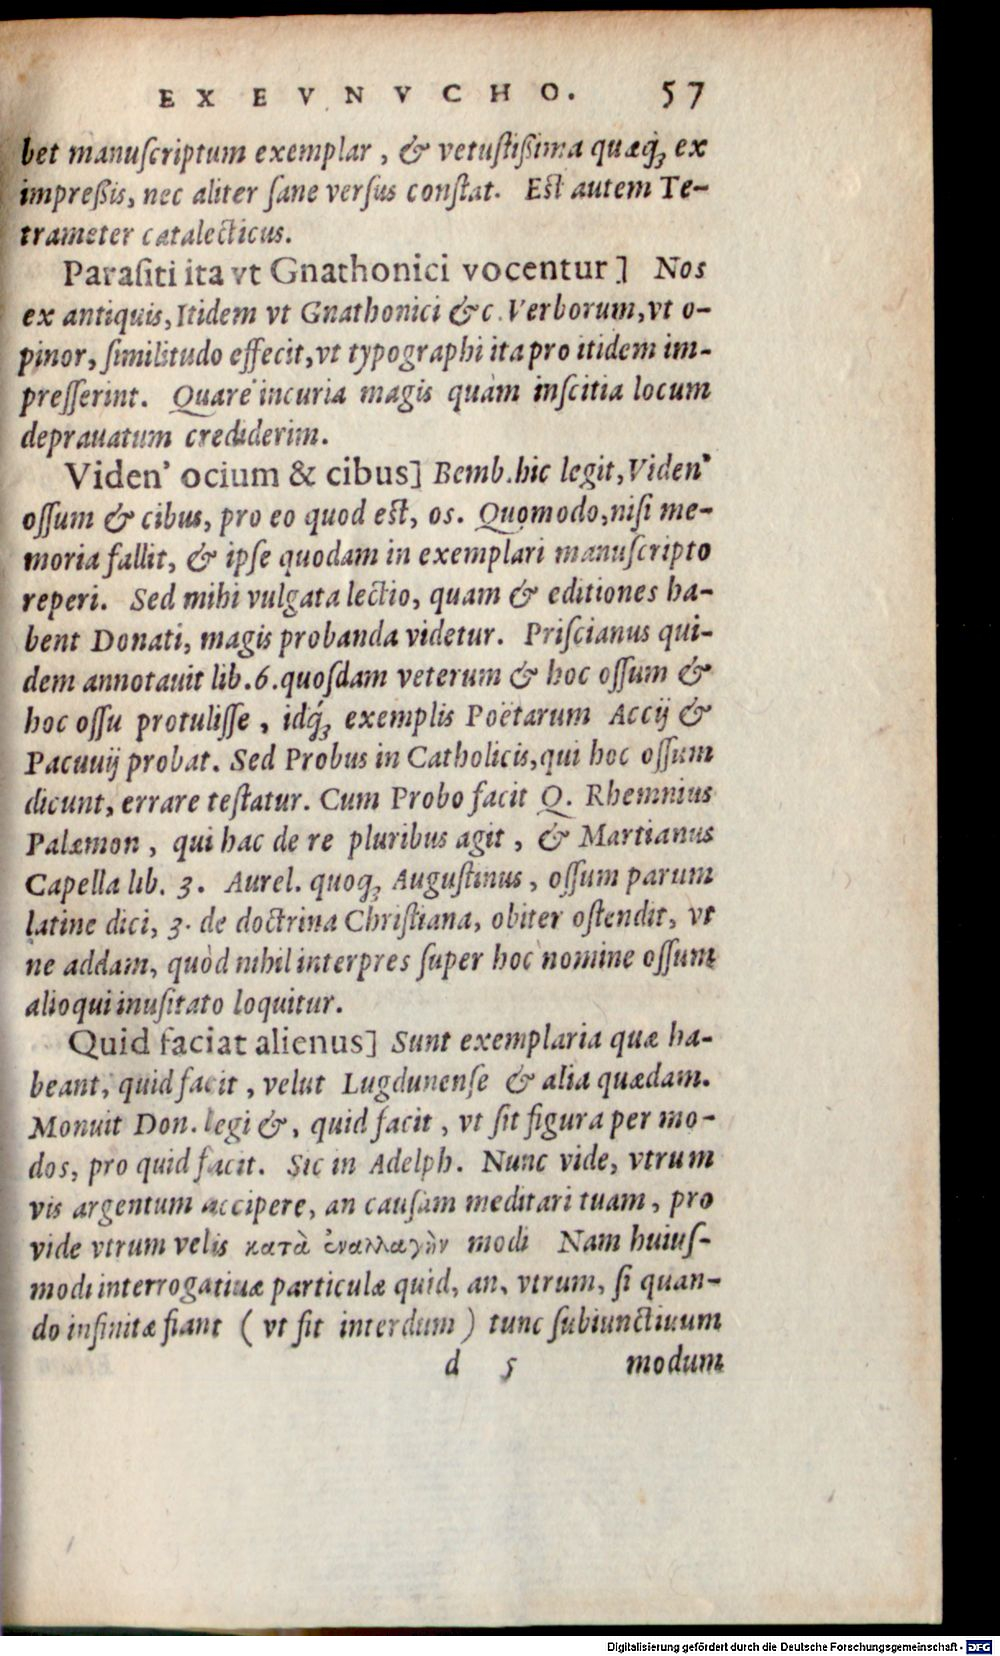 EX EVNVCHO. 57
bet manuſcriptum exemplar, & vetuſtißima quæq́; ex
impreßis, nec aliter ſane verſus conſtat. Est autem Te-
trameter catalecticus.
Paraſiti ita vt Gnathonici vocentur] Nos
ex antiquis, Itidem vt Gnathonici &c. Verborum, vt o-
pinor, ſimilitudo effecit, vt typographi ita pro itidem im-
preſſerint. Quare incuria magis quàm inſcitia locum
deprauatum crediderim.
Viden' ocium & cibus] Bemb. hic legit, Viden'
oſſum & cibus, pro eo quod est, os. Quomodo, niſi me-
moria fallit, & ipſe quodam in exemplari manuſcripto
reperi. Sed mihi vulgata lectio, quam & editiones ha-
bent Donati, magis probanda videtur. Priſcianus qui-
dem annotauit lib. 6. quoſdam veterum & hoc oſſum &
hoc oſſu protuliſſe, idq́; exemplis Poëtarum Accij &
Pacuuij probat. Sed Probus in Catholicis, qui hoc oſſum
dicunt, errare teſtatur. Cum Probo facit Q. Rhemnius
Palæmon, qui hac de re pluribus agit, & Martianus
Capella lib. 3. Aurel. quoq; Auguſtinus, oſſum parum
latine dici, 3. de doctrina Chriſtiana, obiter oſtendit, vt
ne addam, quòd nihil interpres ſuper hoc nomine oſſum
alioqui inuſitato loquitur.
Quid faciat alienus] Sunt exemplaria quæ ha-
beant, quid facit, velut Lugdunenſe & alia quædam.
Monuit Don. legi &, quid facit, vt ſit figura per mo-
dos, pro quid facit. Sic in Adelph. Nunc vide, vtrum
vis argentum accipere, an cauſam meditari tuam, pro
vide vtrum velis κατὰ ἐναλλαγὴν modi Nam huiuſ-
modi interrogatiuæ particulæ quid, an, vtrum, ſi quan-
do infinitæ fiant ( vt ſit interdum ) tunc ſubiunctiuum
d 5 modum
Digitalisierung gefördert durch die Deutsche Forschungsgemeinschaft - DFG